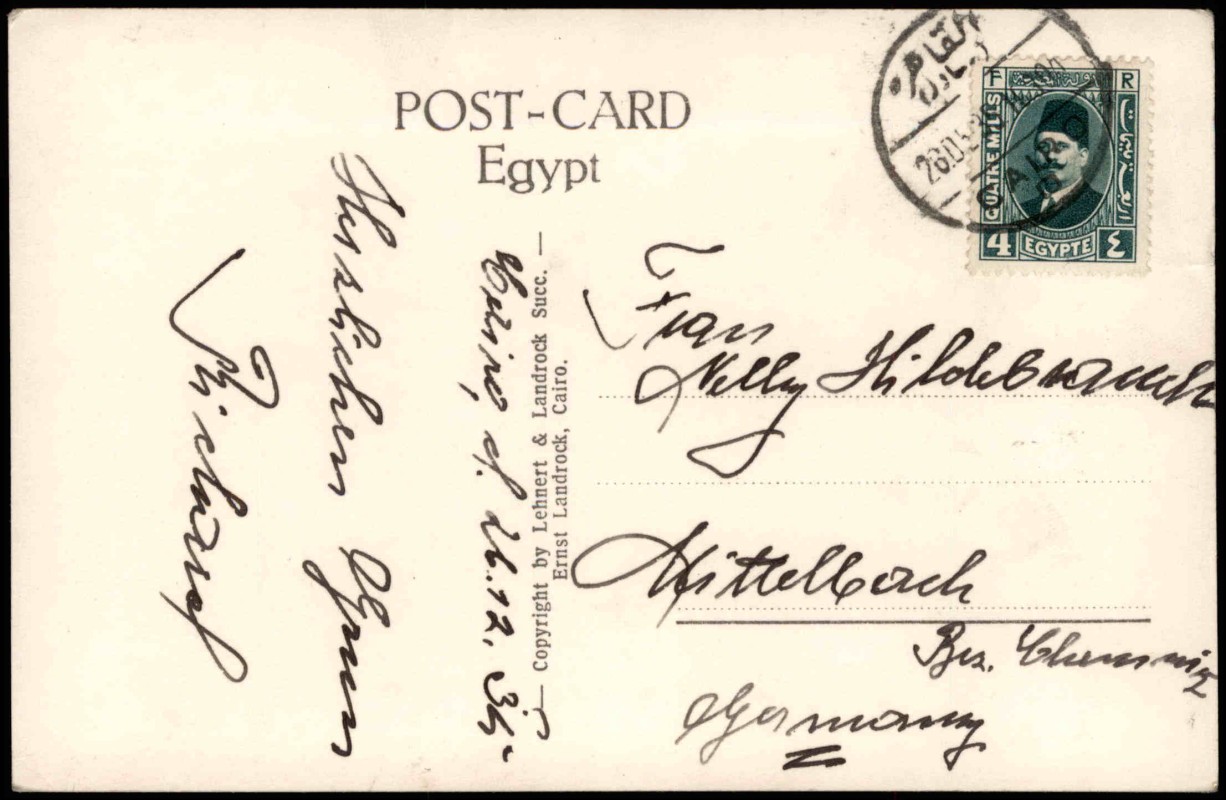 POST-CARD
Egypt
Herzlichen Gruss
Richard
Cairo, d. 26.12.34
— Copyright by Lehnert & Landrock Succ. —
Ernst Landrock, Cairo.
Frau
Nelly Hildebrandt
Mittelbach
Bez. Chemnitz
Germany
القاهرة
CAIRO
F R
QUATRE MILLS
4 EGYPTE ٤